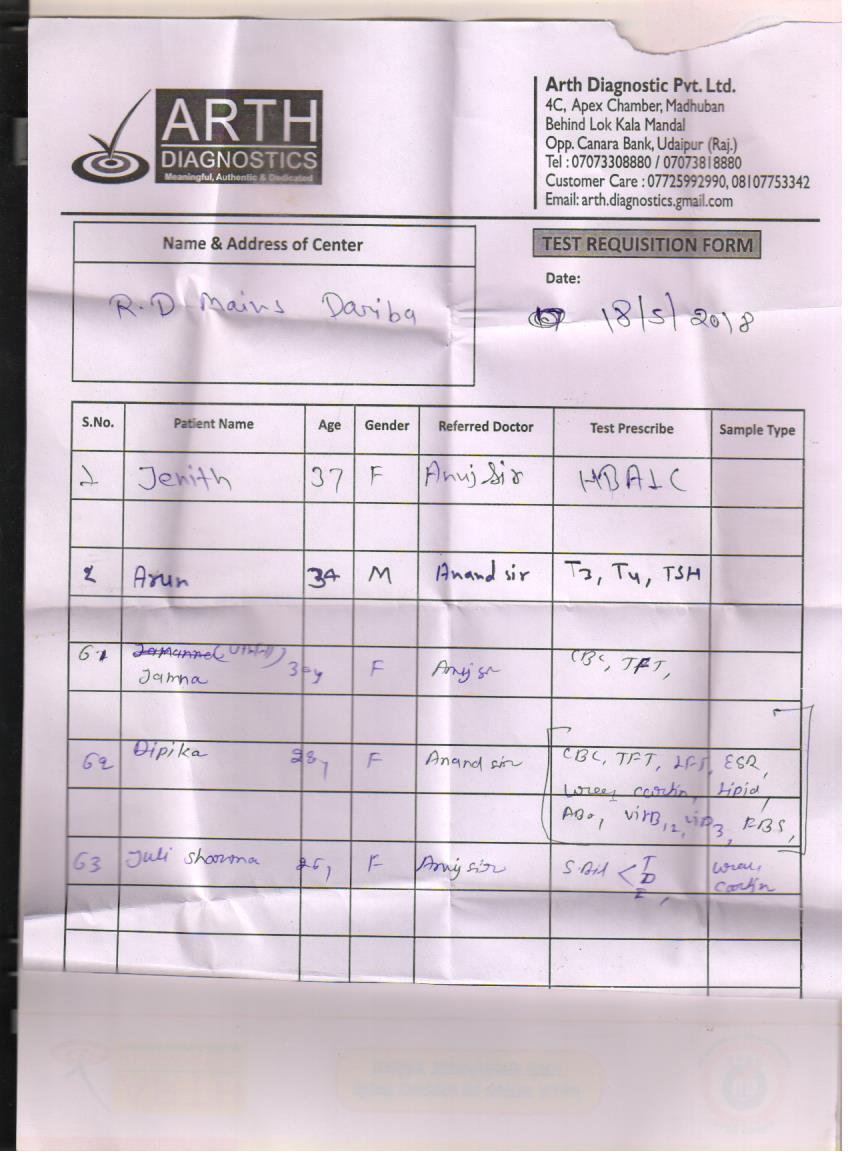 ARTH
DIAGNOSTICS
Meaningful, Authentic & Dedicated
Arth Diagnostic Pvt. Ltd.
4C, Apex Chamber, Madhuban
Behind Lok Kala Mandal
Opp. Canara Bank, Udaipur (Raj.)
Tel : 07073308880 / 07073818880
Customer Care : 07725992990, 08107753342
Email: arth.diagnostics.gmail.com
Name & Address of Center
TEST REQUISITION FORM
Date:
R.D Mains Dariba
18/5/2018
S.No. Patient Name Age Gender Referred Doctor Test Prescribe Sample Type
1 Jenith 37 F Anuj Sir HBA1C
2 Arun 34 M Anand sir T3, T4, TSH
61 Jamna 30y F Anuj sir CBC, TFT,
62 Dipika 28y F Anand sir CBC, TFT, LFT, ESR,
Urea, Lipid,
ABO, vitB12, vitD3, RBS,
63 Juli Sharma 26y F Anuj sir S.Bil < T D I, Urea,